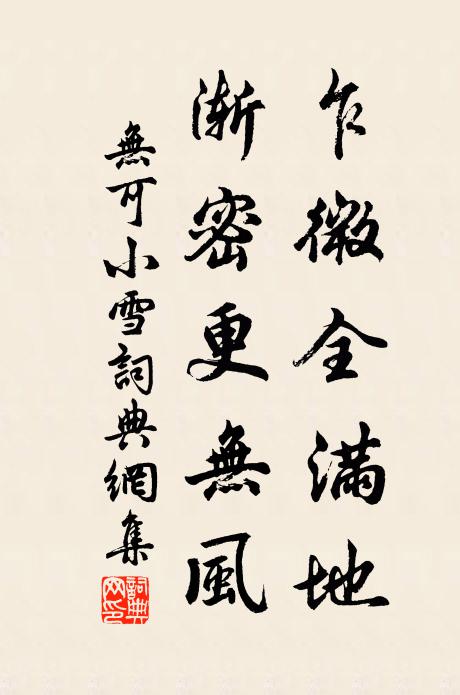 乍微全滿地
漸密更無風
無可小雪詞典網集
詞典網印